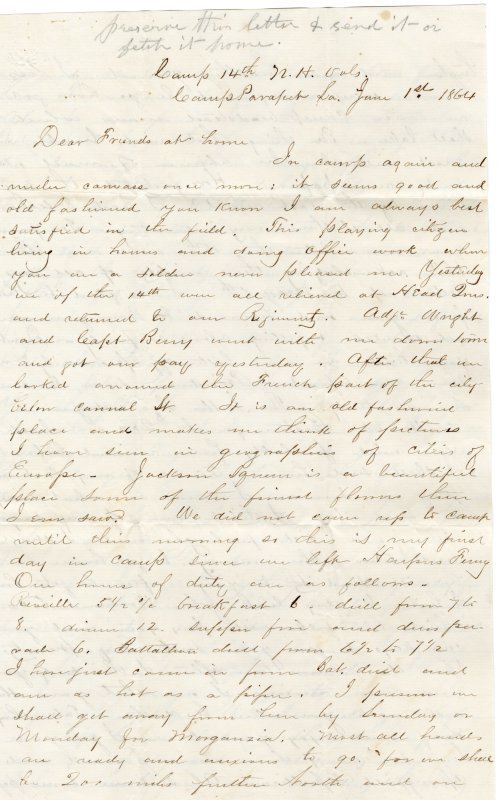 preserve this letter & send it or
fetch it home.
Camp 14th N. H. Vols.
Camp Parapet La. June 1st 1864
Dear Friends at home
In camp again and
under canvass once more; it seems good and
old fashioned you know I am always best
satisfied in the field. This playing citizen
living in houses and doing office work when
you are a soldier never pleased me. Yesterday
we of the 14th were all relieved at Head Qrs.
and returned to our Regiment. Adjt. Wright
and Capt Berry went with me down town
and got our pay yesterday. After that we
looked around the French part of the city
below cannal St. It is an old fashioned
place and makes me think of pictures
I have seen in geographies of cities of
Europe - Jackson Square is a beautiful
place some of the finest flowers there
I ever saw. We did not come up to camp
until this morning so this is my first
day in camp since we left Harpers Ferry
Our hours of duty are as follows -
Reveille 5 1/2 breakfast 6. drill from 7 to
8. dinner 12. supper five and dress pa-
rade 6. Battallion drill from 6 1/2 to 7 1/2
I have just come in from Bat. drill and
am as hot as a piper. I presume we
shall get away from here by Sunday or
Monday for Morganzia. Most all hands
are ready and anxious to go. for we shall
be 200 miles further North and on